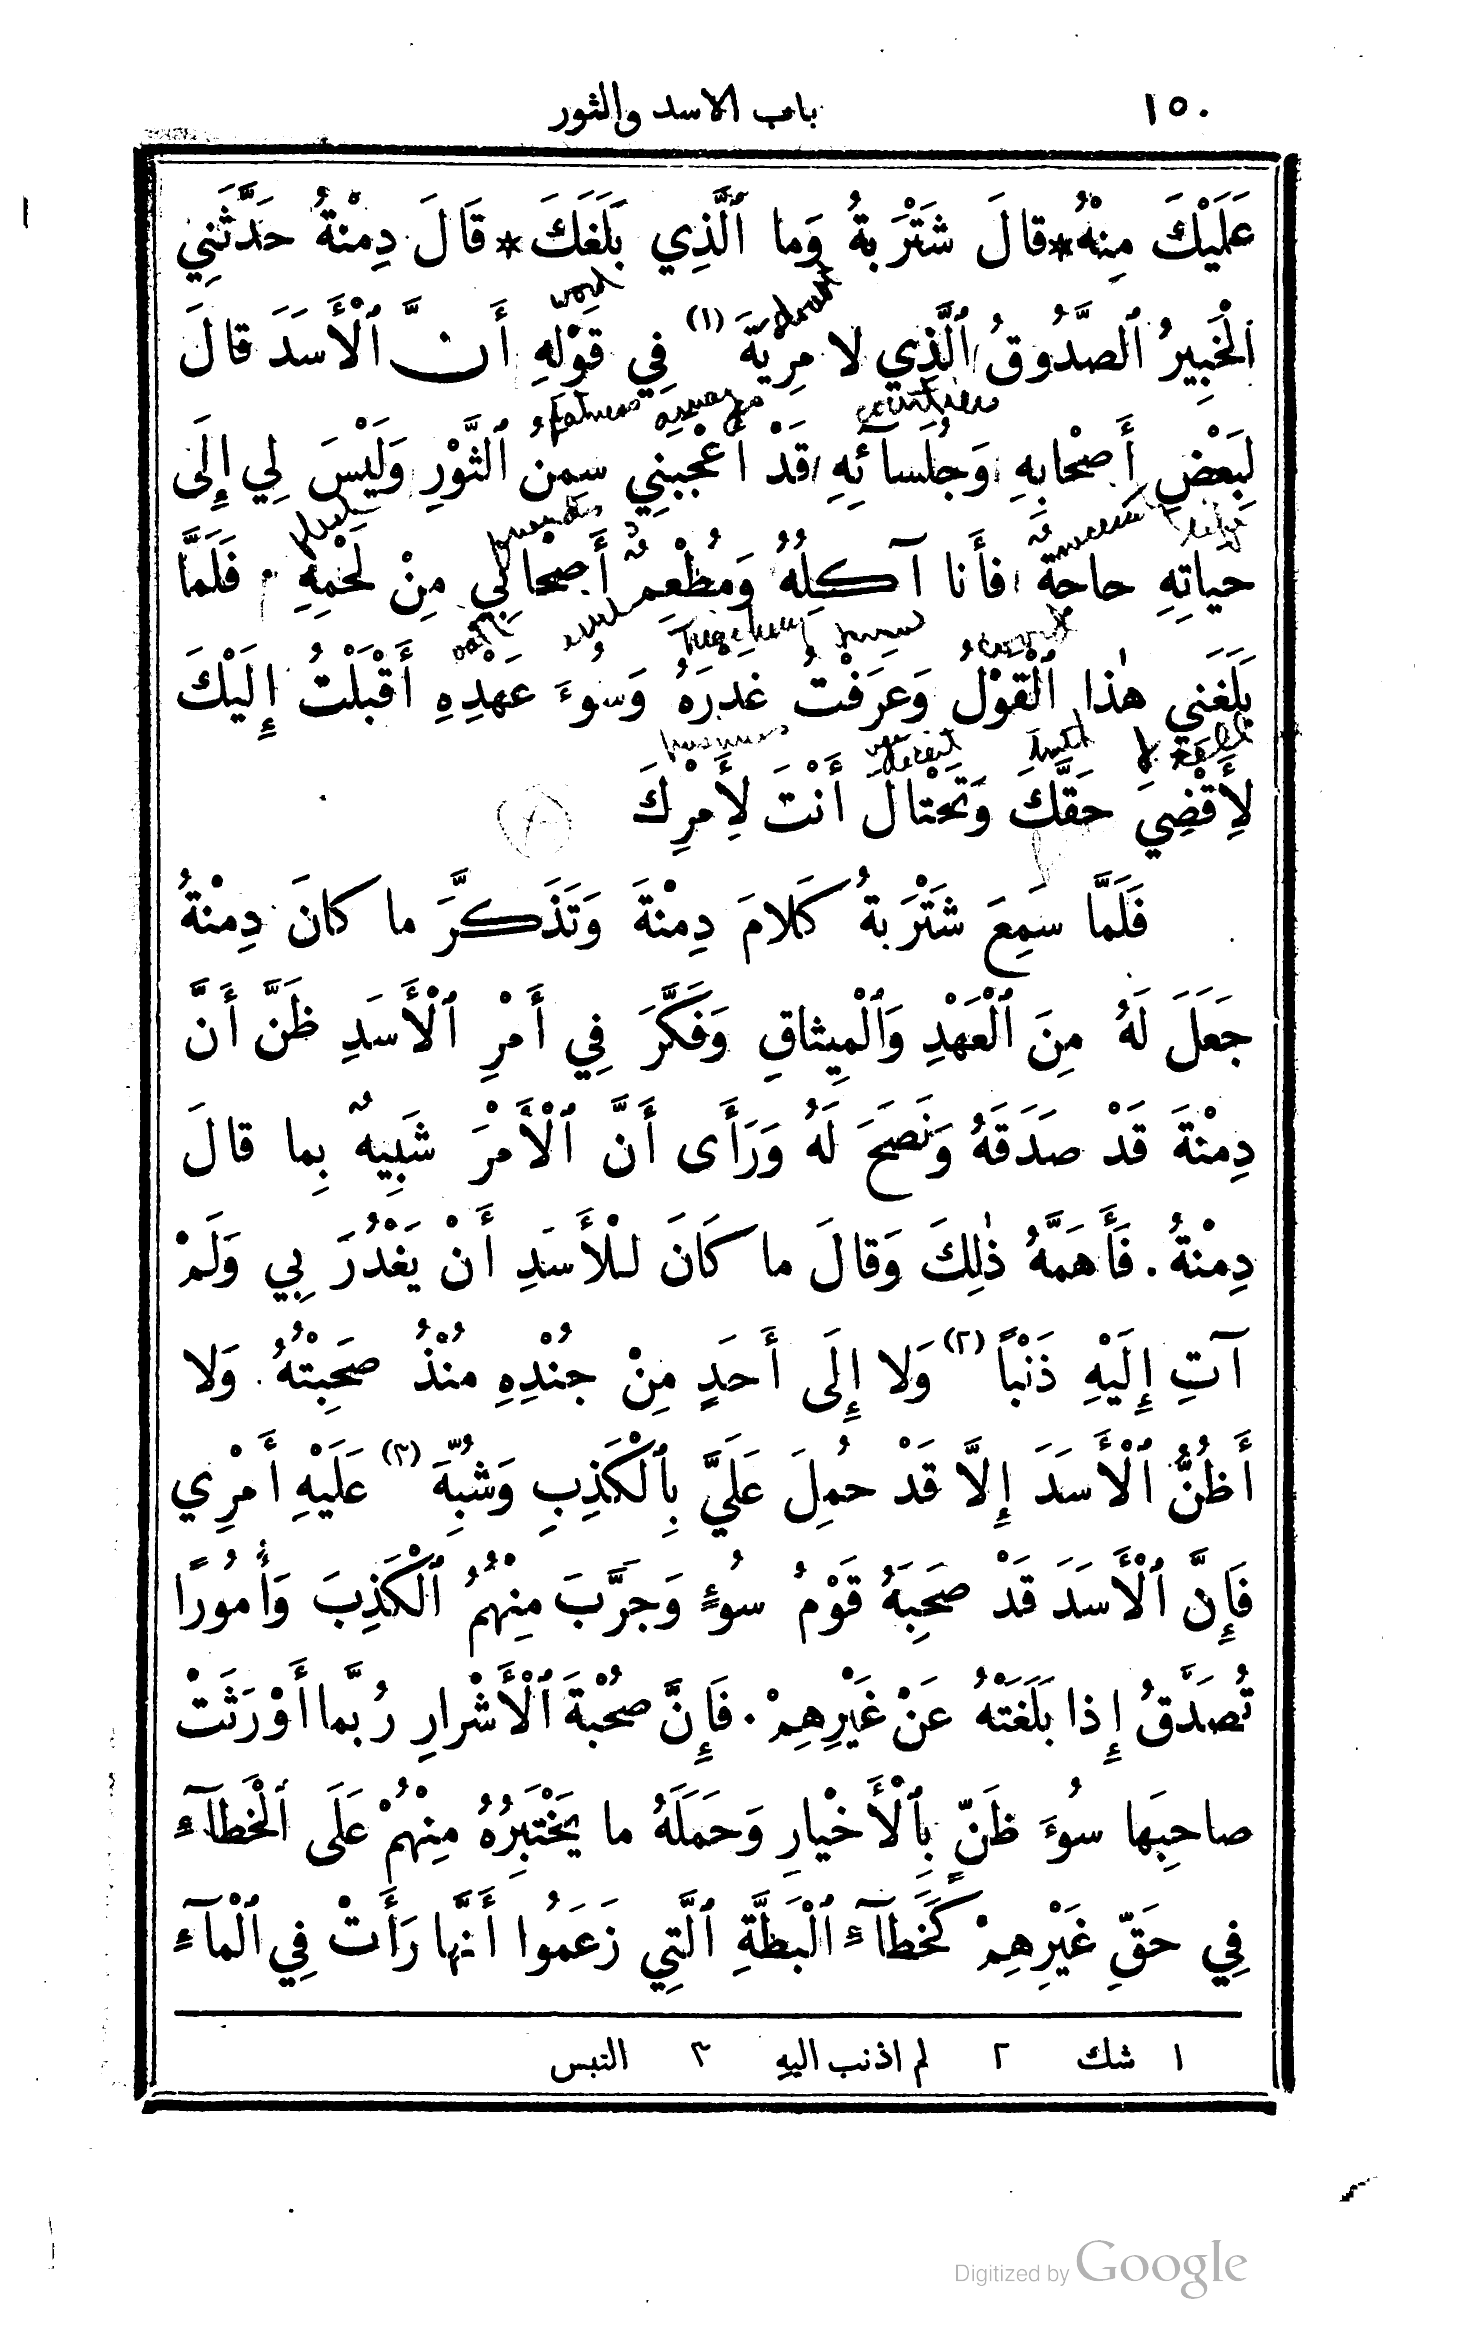 ١٥٠ باب الاسد والثور
عَلَيْكَ مِنْهُ * قالَ شَتْرَبةُ وَما ٱلَّذِي بَلَغَكَ * قَالَ دِمْنةُ حَدَّثَنِي
word doubt
ٱلْخَبِيرُ ٱلصَّدُوقُ ٱلَّذِي لا مِرْيَةَ (١) فِي قَوْلِهِ أَنَّ ٱلْأَسَدَ قالَ
fatness
لِبَعْضِ أَصْحابِهِ وَجُلَسآئِهِ قَدْ أَعْجَبَنِي سِمَنُ ٱلثَّوْرِ وَلَيْسَ لِي إِلَى
flesh friends life
حَياتِهِ حاجةٌ فأَنا آكِلُهُ وَمُطْعِمٌ أَصْحابِي مِنْ لَحْمِهِ . فَلَمَّا
oath evil
بَلَغَنِي هٰذا ٱلْقَوْلُ وَعَرَفْتُ غَدرَهُ وَسُوءَ عَهْدِهِ أَقْبَلْتُ إِلَيْكَ
لِأَقْضِيَ حَقَّكَ وَتَحْتالَ أَنْتَ لِأَمْرِكَ
فَلَمَّا سَمِعَ شَتْرَبةُ كَلامَ دِمْنةَ وَتَذَكَّرَ ما كانَ دِمْنةُ
جَعَلَ لَهُ مِنَ ٱلْعَهْدِ وَٱلْمِيثاقِ وَفَكَّرَ فِي أَمْرِ ٱلْأَسَدِ ظَنَّ أَنَّ
دِمْنةَ قَدْ صَدَقَهُ وَنَصَحَ لَهُ وَرَأَى أَنَّ ٱلْأَمْرَ شَبِيهٌ بِما قالَ
دِمْنةُ . فَأَهَمَّهُ ذٰلِكَ وَقالَ ما كَانَ لِلْأَسَدِ أَنْ يَغْدُرَ بِي وَلَمْ
آتِ إِلَيْهِ ذَنْباً (٢) وَلا إِلَى أَحَدٍ مِنْ جُنْدِهِ مُنْذُ صَحِبْتُهُ . وَلا
أَظُنُّ ٱلْأَسَدَ إِلاَّ قَدْ حُمِلَ عَلَيَّ بِٱلْكَذِبِ وَشُبِّهَ (٣) عَلَيْهِ أَمْرِي
فَإِنَّ ٱلْأَسَدَ قَدْ صَحِبَهُ قَوْمُ سُوءٍ وَجَرَّبَ مِنْهُمُ ٱلْكَذِبَ وَأُمُورًا
تُصَدَّقُ إِذا بَلَغَتْهُ عَنْ غَيْرِهِمْ . فَإِنَّ صُحْبةَ ٱلْأَشْرارِ رُبَّما أَوْرَثَتْ
صاحِبَها سُوءَ ظَنٍّ بِٱلْأَخْيارِ وَحَمَلَهُ ما يَخْتَبِرُهُ مِنْهُمْ عَلَى ٱلْخَطآءِ
فِي حَقِّ غَيْرِهِمْ كَخَطآءِ ٱلْبَطَّةِ ٱلَّتِي زَعَمُوا أَنَّها رَأَتْ فِي ٱلْمآءِ
١ شك ٢ لم اذنب اليهِ ٣ التبس
Digitized by Google